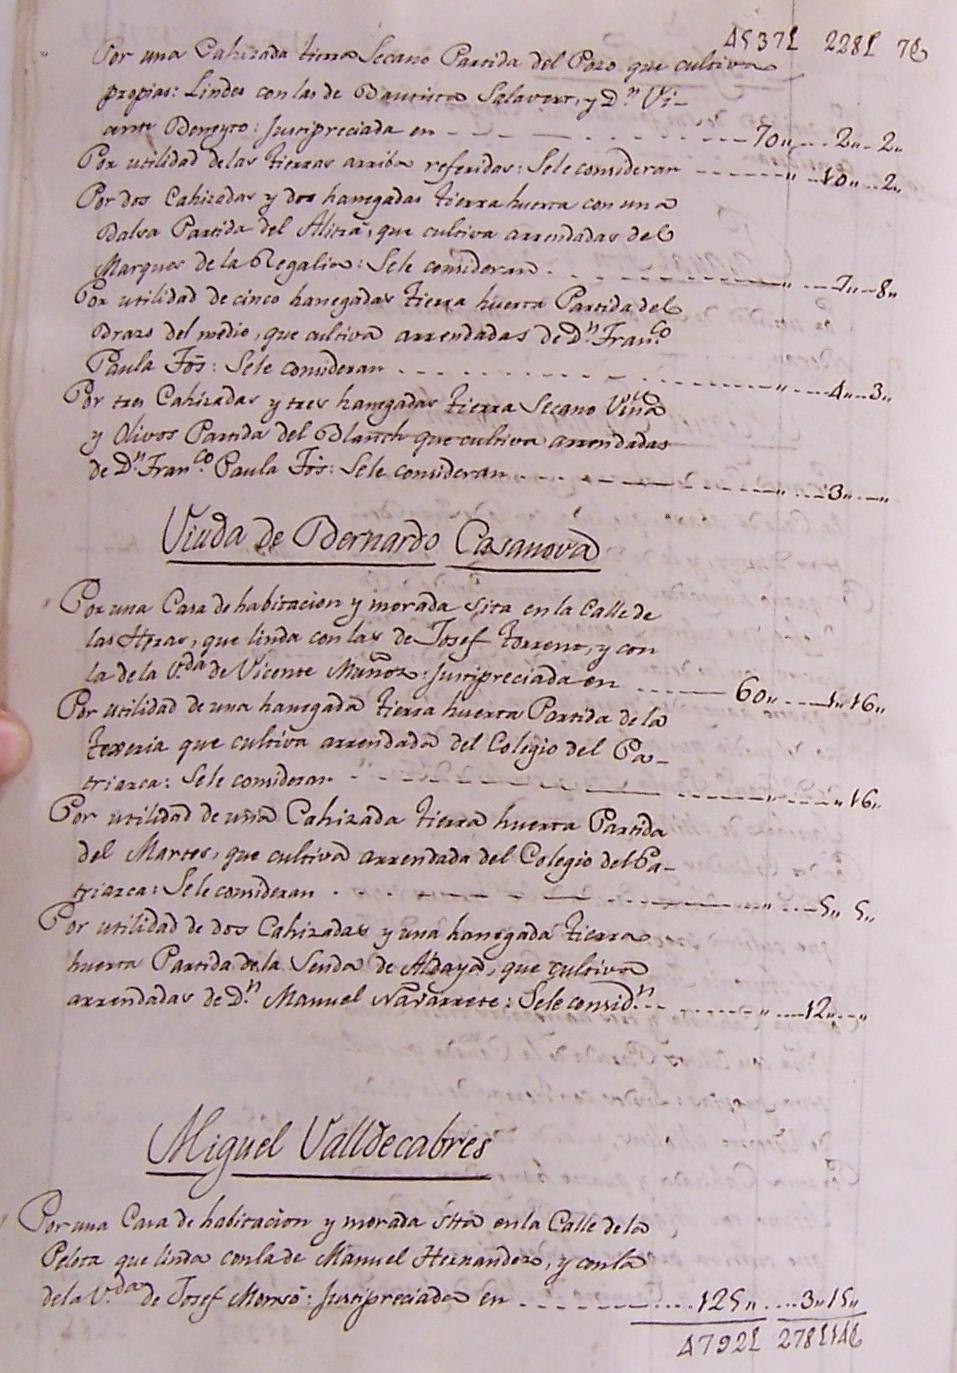 4537£ 228£ 7£
Por una Cahizada tierra Secano Partida del Pozo que cultiva
propias: Lindes con las de Bautista Salavert, y D.n Vi-
cente Beneyto: Justipreciada en - - - 70,, ... 2,, 2,,
Por utilidad de las tierras arriba referidas: Sele consideran - - - ,, 10,, 2,,
Por dos Cahizadas y dos hanegadas tierra huerta con una
Balsa Partida del Alitrá, que cultiva arrendadas del
Marques de la Regalia: Sele consideran - - - ,, 7,, 8,,
Por utilidad de cinco hanegadas tierra huerta Partida del
Brazo del medio, que cultiva arrendadas de D.n Fran.co
Paula Fós: Sele consideran - - - ,, 4,, 3,,
Por tres Cahizadas y tres hanegadas tierra Secano Viña
y Olivos Partida del Blanch que cultiva arrendadas
de D.n Fran.co Paula Fós: Sele consideran - - - ,, 3,, ,,
Viuda de Bernardo Casanova
Por una Casa de habitacion y morada sita en la Calle de
las Heras, que linda con las de Josef Torrent, y con
la de la V.da de Vicente Muñoz: Justipreciada en - - - 60,, 1,, 16,,
Por utilidad de una hanegada tierra huerta Partida de la
texeria que cultiva arrendada del Colegio del Pa-
triarca: Sele consideran - - - ,, ,, 16,,
Por utilidad de una Cahizada tierra huerta Partida
del Martes, que cultiva arrendada del Colegio del Pa-
triarca: Sele consideran - - - ,, 5,, 5,,
Por utilidad de dos Cahizadas y una hanegada tierra
huerta Partida de la Senda de Aldaya, que cultiva
arrendadas de D.n Manuel Navarrete: Sele consid.n - - - ,, 12,, ,,
Miguel Valldecabres
Por una Casa de habitacion y morada sita en la Calle de la
Pelota que linda con la de Manuel Hernandez, y con la
de la V.da de Josef Monsó: Justipreciada en - - - 125,, 3,, 15,,
4792£ 278£14£